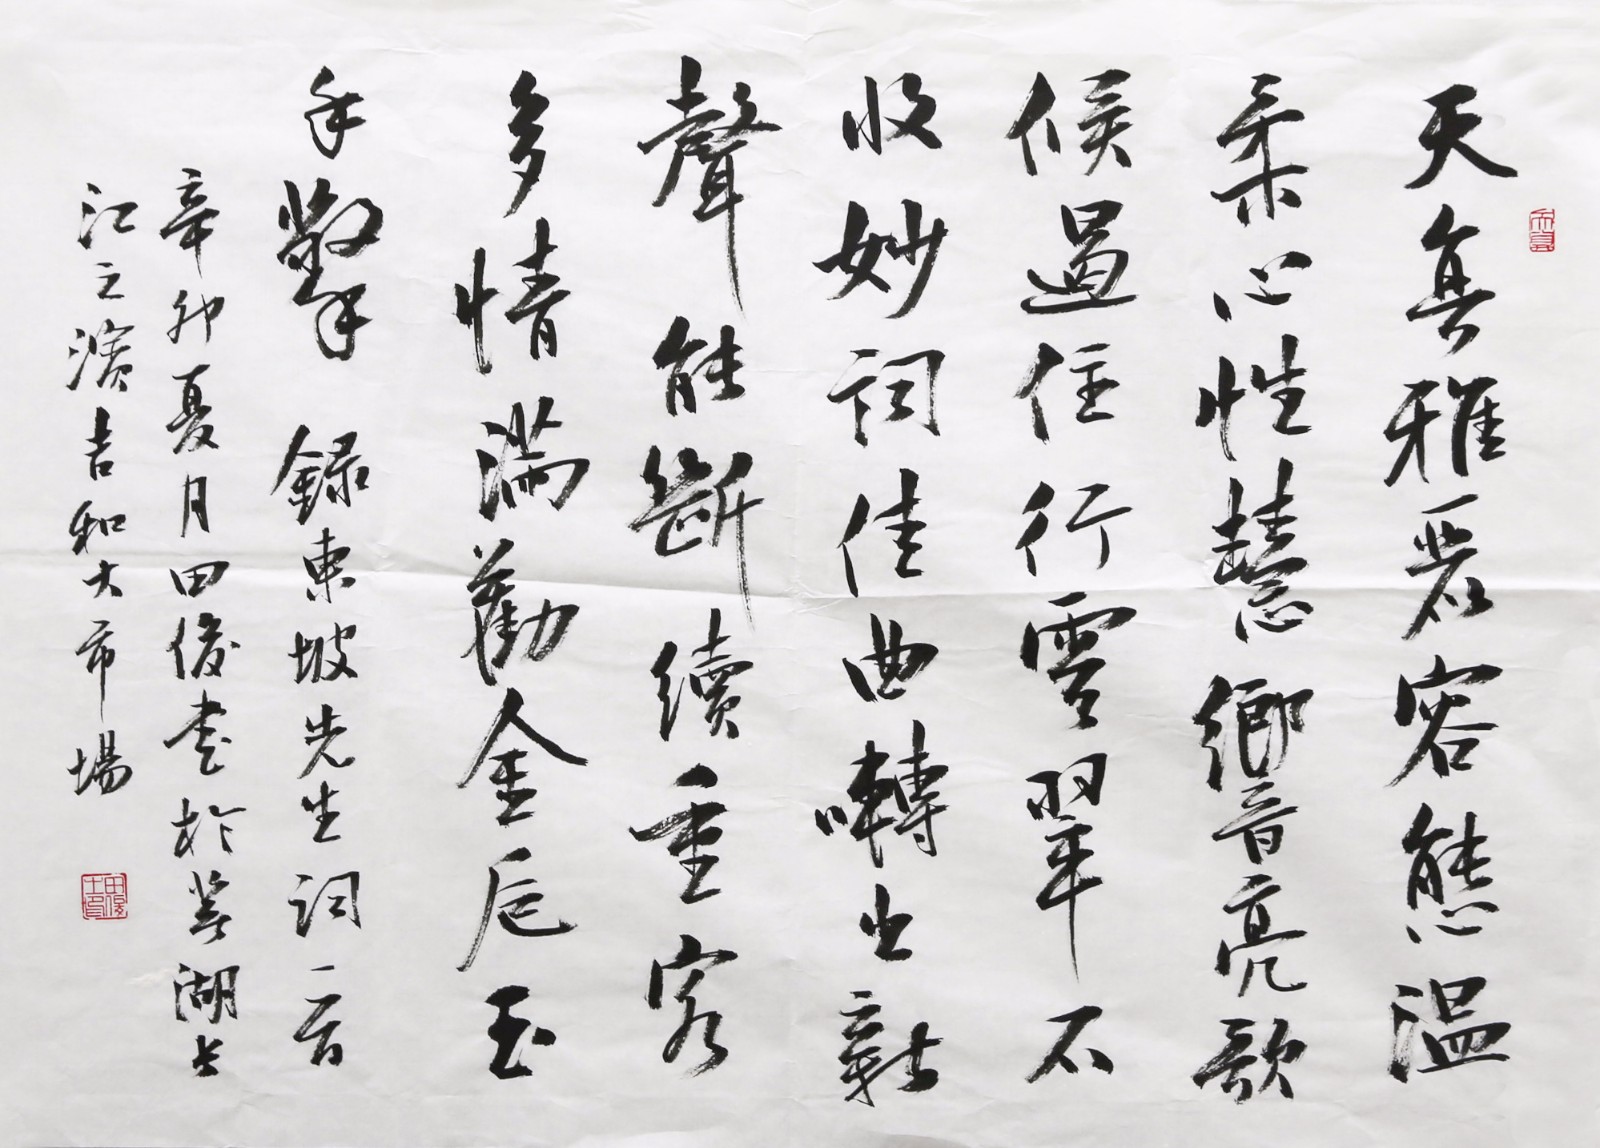 天真雅麗容態溫
柔心性慧響亮歌
候遏住行雲翠不
收妙詞佳曲囀出新
聲能斷續重客
多情滿勸金卮玉
手擎 錄東坡先生詞一首
辛卯夏月田俊書於蕪湖長
江之濱吉和大市場